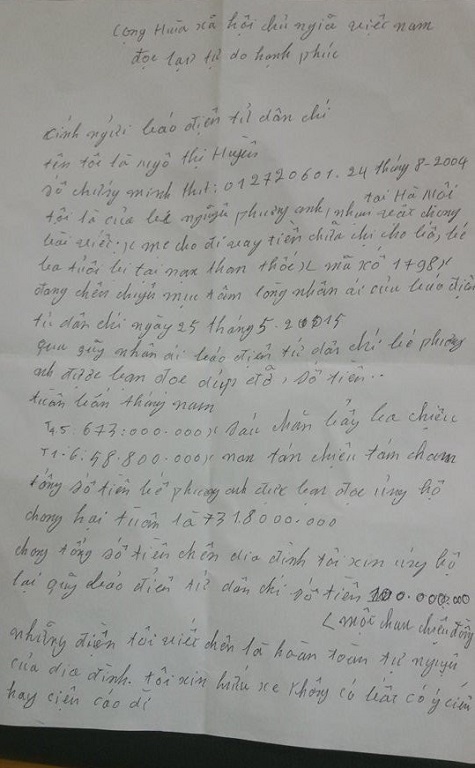 Cộng Hưa xã hội chủ ngiã việt nam
đọc lạp tự do hạnh phúc
kính ngửi báo điện tử dân chí
tên tôi là ngô thị Huyền
số chứng minh thư: 012720601. 24 tháng 8-2004
tại Hà Nội
tôi là của bé nguyễn phương anh, nhun vật chong
bài viết. mẹ cho đi vay tiền chữa chị cho bé, bé
ba tuổi bị tai nạn than thốc mã xố 1798
đang chên chuyên mục tấm lòng nhân ái của báo điện
tử dân chí ngày 25 tháng 5. 2015
qua quỹ nhân ái báo điện tử dân chí bé phương
anh được bạn đọc dúp đỡ, số tiền..
tuần bốn tháng năm
T4.5: 673:000.000 sáu chăn bẩy ba chiệu
T1-6: 58.800.000 nam tán chiệu tám cham
tổng số tiền bé phương anh được bạn đọc ủng hộ
chong hai tuần là 731.8000.000
chong tổng số tiền chên dia đình tôi xin ủng hộ
lại quỹ báo điện tử dân chí số tiền 100.000.000
( một chăn chiệu đồng
những điền tôi viết chên là hoàn toàn tự nguyện
của dia đình. tôi xin hứu xe không có bất có ý ciến
hay ciện cáo dì